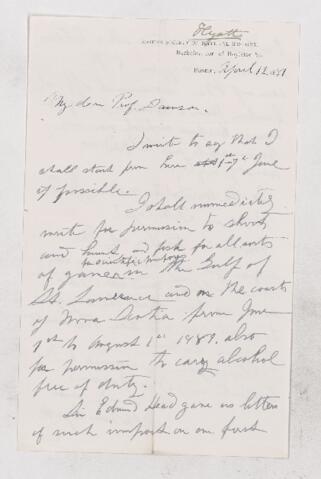 Hyatt
BOSTON SOCIETY OF NATURAL HISTORY,
Berkeley, cor. of Boylston St.
BOSTON, April 12 1887
My dear Prof. Dawson.
I write to say that I
shall start from here 1st June
if possible.
I shall immediately
write for permission to shoot
and hunt and fish for all sorts
for scientific purposes
of game in the Gulf of
St. Lawrence and on the coasts
of Nova Scotia from June
1st to August 1st 1887. also
for permission to carry alcohol
free of duty.
Sir Edmund Head gave us letters
of much import on our first